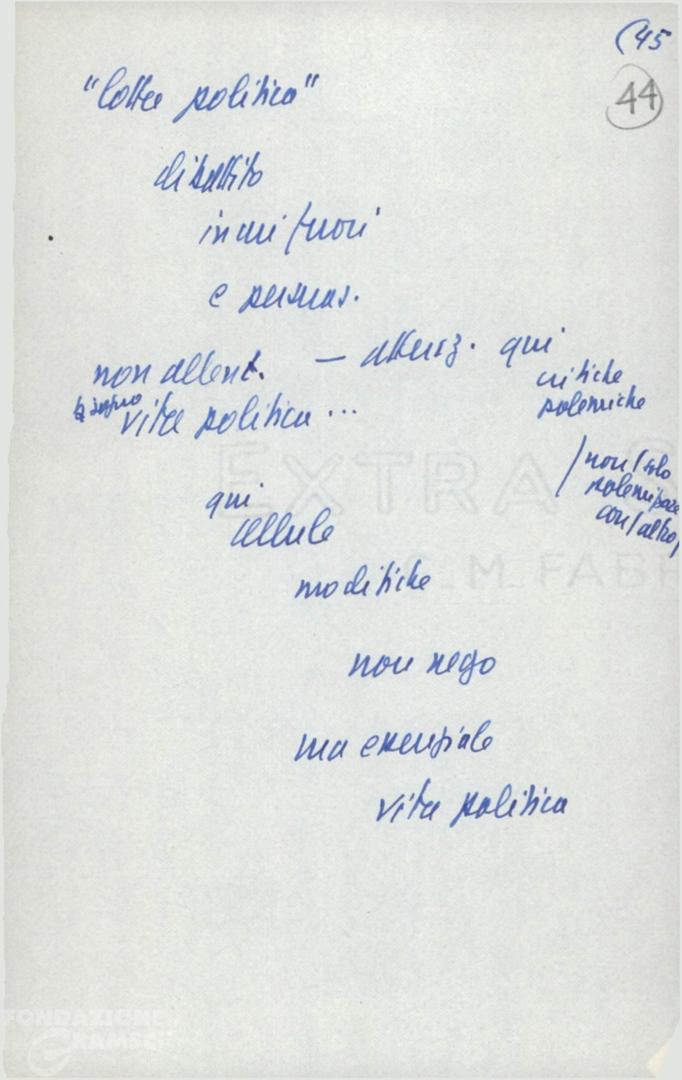 (45
44
"lotta politica"
dibattito
in cui fuori
e persuas.
non allent. — attenz. qui
critiche
polemiche
bisogno
vita politica ...
/ non solo
con altro
qui
cellule
modifiche
non nego
ma essenziale
vita politica
EXTRA S
C. M. FABR
FONDAZIONE
GRAMSCI